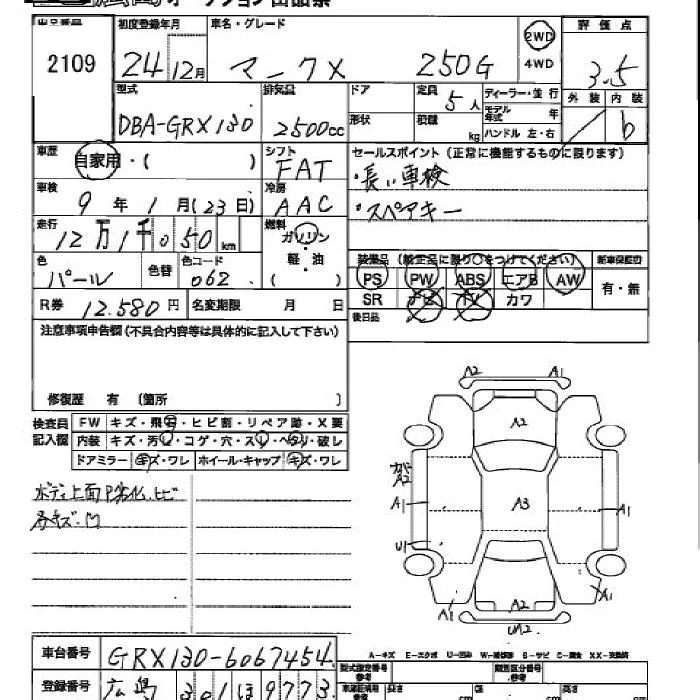 オークション出品票
出品番号 初度登録年月 車名・グレード 評価点
2109 24 12月 マークX 250G 2WD 4WD 3.5
型式 排気量 ドア 定員 5人 ディーラー・並行 外装 内装
DBA-GRX130 2500cc 形状 積載 kg モデル年式 年 ハンドル 左・右 b
車歴 自家用・( ) シフト FAT セールスポイント(正常に機能するものに限ります)
・長い車検
車検 9年1月(23日) 冷房 AAC ・スペアキー
走行 12万1千050km 燃料 ガソリン
軽・油
( )
装備品(純正品に限り○をつけてください) 新車保証書
色 パール 色替 色コード 062 PS PW ABS エアB AW 有・無
SR ナビ TV カワ
R券 12.580円 名変期限 月 日 後日品
注意事項申告欄(不具合内容等は具体的に記入して下さい)
修復歴 有 (箇所 )
検査員記入欄 FW キズ・飛石・ヒビ割・リペア跡・X要
内装 キズ・汚レ・コゲ・穴・スレ・ヘタリ・破レ
ドアミラー キズ・ワレ ホイール・キャップ キズ・ワレ
ボディ上面P劣化、ヒビ
各キズ・凹
A2 A1
A2
A2
A1 A3 A1
U1
A1 A2 XA1
A-キズ E-エクボ U-凹み W-補修跡 S-サビ C-腐食 XX-交換済
車台番号 GRX130-6067454
型式指定番号 参考 類別区分番号 参考
登録番号 広島 301 ほ 9773
長さ cm 幅 cm 高さ